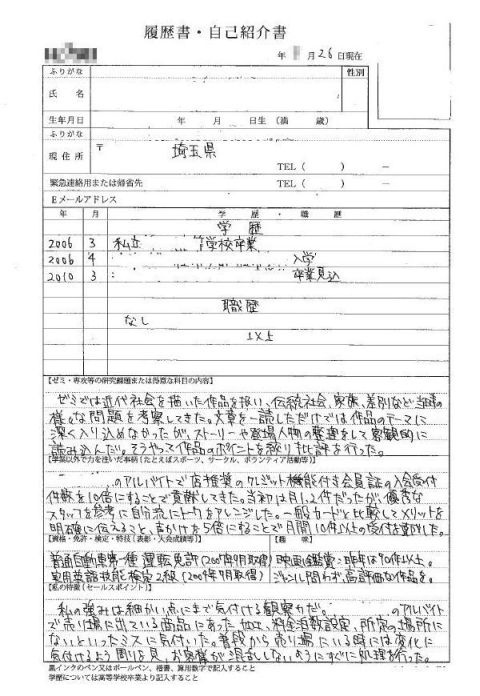 履歴書・自己紹介書
年 月 26 日現在
ふりがな
性別
氏 名
生年月日 年 月 日生 (満 歳)
ふりがな
現住所 〒 埼玉県
TEL ( ) −
緊急連絡用または帰省先 TEL ( ) −
Eメールアドレス
年 月 学 歴 ・ 職 歴
学 歴
2006 3 私立 学校卒業
2006 4 入学
2010 3 卒業見込
職歴
なし
以上
【ゼミ・専攻等の研究課題または得意な科目の内容】
ゼミでは近代社会を描いた作品を扱い、伝統社会、家族、差別など当時の
様々な問題を考察してきた。文章を一読しただけでは作品のテーマに
深く入り込めなかったが、ストーリーや登場人物の整理をして客観的に
読み込んだ。そうやって作品のポイントを絞り批評を行った。
【学業以外で力を注いだ事柄(たとえばスポーツ、サークル、ボランティア活動等)】
のアルバイトで店推奨のクレジット機能付き会員証の入会受付
件数を10倍にすることで貢献してきた。当初は月1,2件だったが、優秀な
スタッフを参考に自分流にトークをアレンジした。一般カードと比較してメリットを
明確に伝えること、声かけを5倍にすることで月間10件以上の受付を
【資格・免許・検定・特技(表彰・大会成績等)】
普通自動車第一種運転免許 月取得)
実用英語技能検定2級 月取得)
【趣 味】
映画鑑賞:昨年は90作以上。
ジャンル問わず、高評価な作品を。
【私の特徴(セールスポイント)】
私の強みは細かい点にまで気付ける観察力だ。 のアルバイト
で売り場に出ている商品にあった 、料金 設定、所定の場所に
ないといったミスに気付いた。普段から売り場にいる時には変化に
気付けるよう周りを見、お客様が混乱しないようにすぐに処理を行った。
黒インクのペン又はボールペン、楷書、算用数字で記入すること
学歴については高等学校卒業より記入すること